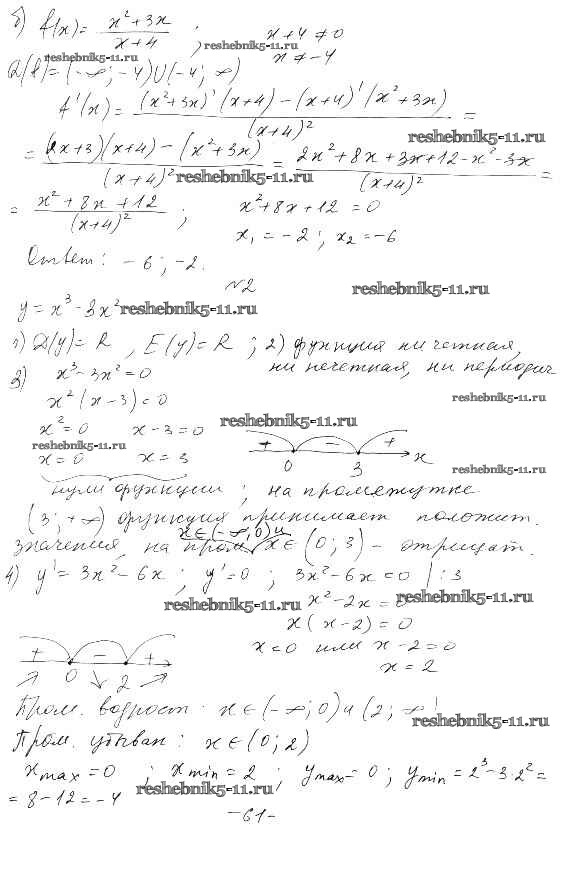 б) f(x) = (x² + 3x)/(x + 4) ; x + 4 ≠ 0
reshebnik5-11.ru
x ≠ -4
reshebnik5-11.ru
D(f) = (-∞; -4)∪(-4; ∞)
f'(x) = ((x²+3x)'(x+4) - (x+4)'(x²+3x))/(x+4)² =
reshebnik5-11.ru
= ((2x+3)(x+4) - (x²+3x))/(x+4)² = (2x²+8x+3x+12-x²-3x)/(x+4)² =
reshebnik5-11.ru
= (x²+8x+12)/(x+4)² ; x²+8x+12 = 0
x₁ = -2 ; x₂ = -6
Ответ: -6; -2.
№2
reshebnik5-11.ru
y = x³ - 3x²
reshebnik5-11.ru
1) D(y) = R , E(y) = R ; 2) функция ни четная,
ни нечетная, ни периодич
3) x³ - 3x² = 0
x² (x - 3) = 0
reshebnik5-11.ru
x² = 0 x - 3 = 0
reshebnik5-11.ru
reshebnik5-11.ru
x = 0 x = 3
+ - +
0 3 x
reshebnik5-11.ru
нули функции ; на промежутке
(3; +∞) функция принимает положит.
x∈(-∞; 0) и
значения, на пром x∈(0; 3) - отрицат.
4) y' = 3x² - 6x ; y' = 0 ; 3x² - 6x = 0 | : 3
reshebnik5-11.ru
x² - 2x = 0
reshebnik5-11.ru
x(x - 2) = 0
x = 0 или x - 2 = 0
x = 2
+ - +
0 2
Пром. возраст: x∈(-∞; 0) и (2; ∞
reshebnik5-11.ru
Пром. убыван: x∈(0; 2)
x max = 0 ; x min = 2 ; y max = 0 ; y min = 2³ - 3·2² =
reshebnik5-11.ru
= 8 - 12 = -4
-61-